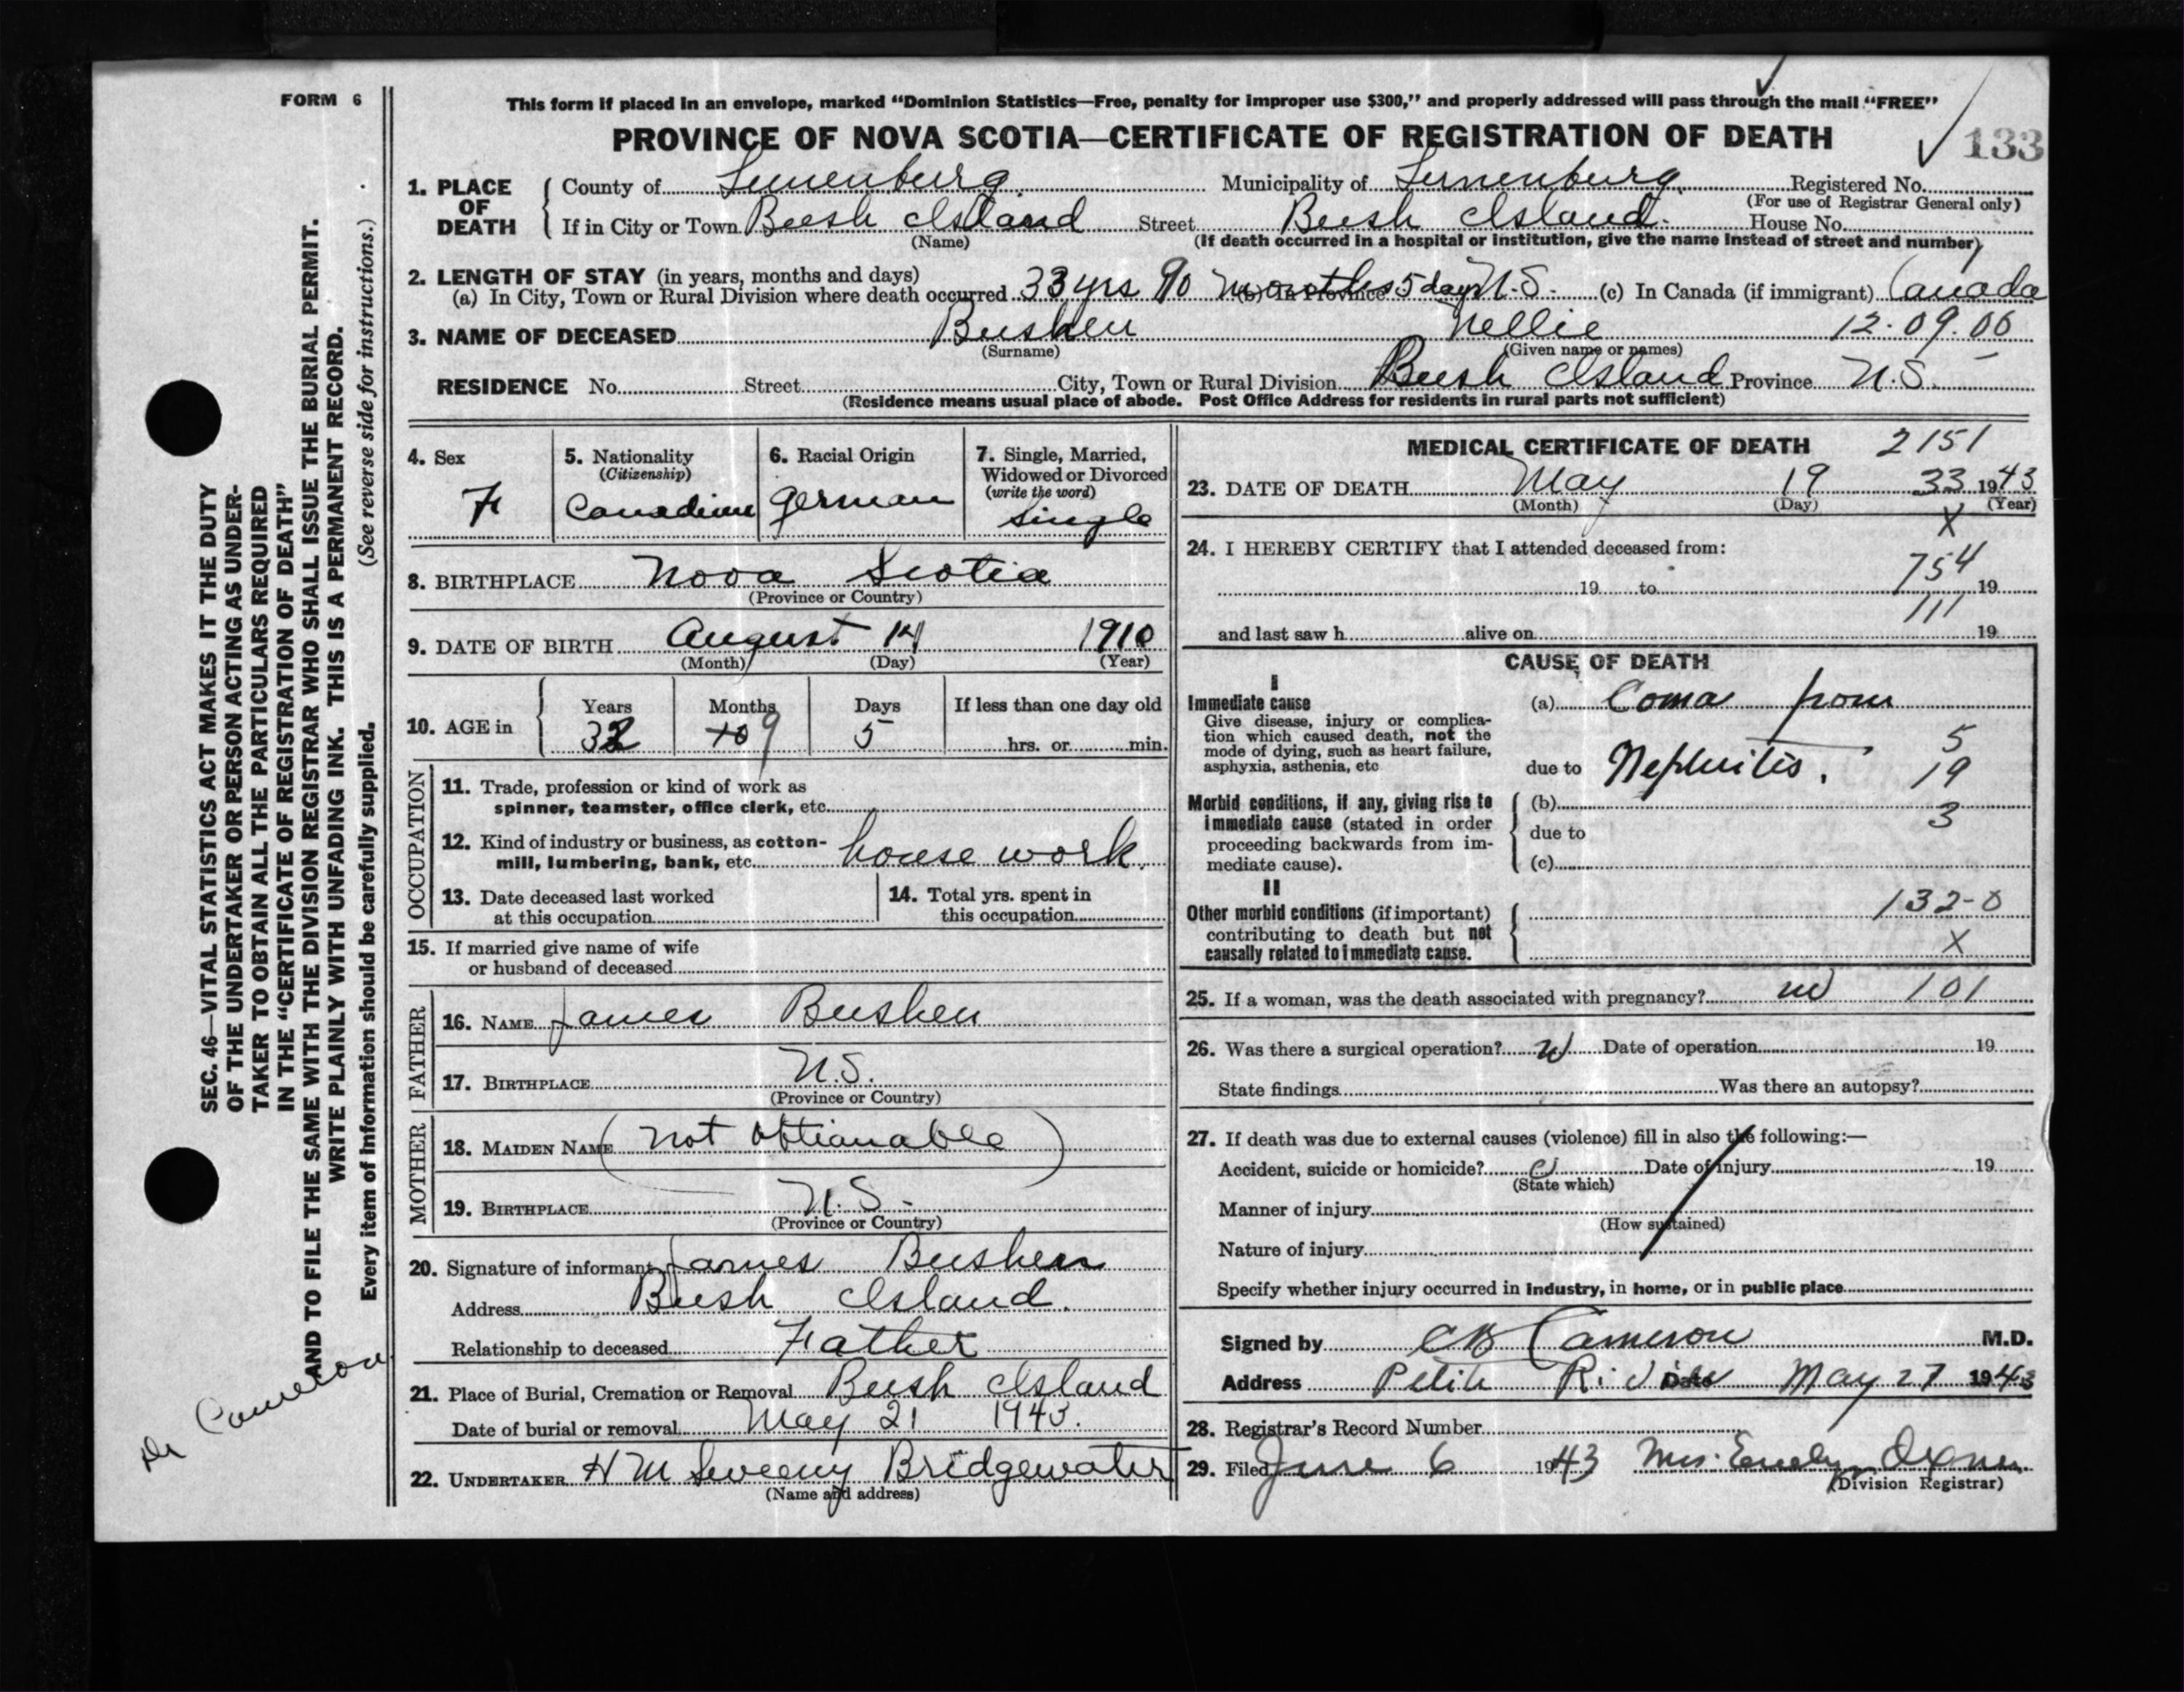 FORM 6
This form if placed in an envelope, marked “Dominion Statistics—Free, penalty for improper use $300,” and properly addressed will pass through the mail “FREE”
PROVINCE OF NOVA SCOTIA—CERTIFICATE OF REGISTRATION OF DEATH
133
1. PLACE OF DEATH County of Lunenburg Municipality of Lunenburg Registered No.
(For use of Registrar General only)
If in City or Town Bush Island Street Bush Island House No.
(Name) (If death occurred in a hospital or institution, give the name instead of street and number)
2. LENGTH OF STAY (in years, months and days)
(a) In City, Town or Rural Division where death occurred 33 yrs 9 10 months (b) In Province 5 days N.S. (c) In Canada (if immigrant) Canada
3. NAME OF DECEASED Bushen Nellie 12.09.06
(Surname) (Given name or names)
RESIDENCE No. Street City, Town or Rural Division Bush Island Province N.S.
(Residence means usual place of abode. Post Office Address for residents in rural parts not sufficient)
4. Sex F
5. Nationality (Citizenship) Canadian
6. Racial Origin German
7. Single, Married, Widowed or Divorced (write the word) Single
8. BIRTHPLACE Nova Scotia
(Province or Country)
9. DATE OF BIRTH August 14 1910
(Month) (Day) (Year)
10. AGE in Years 32 Months 10 9 Days 5 If less than one day old hrs. or min.
OCCUPATION
11. Trade, profession or kind of work as
spinner, teamster, office clerk, etc.
12. Kind of industry or business, as cotton-
mill, lumbering, bank, etc. house work.
13. Date deceased last worked at this occupation
14. Total yrs. spent in this occupation
15. If married give name of wife
or husband of deceased
FATHER
16. NAME James Bushen
17. BIRTHPLACE N.S.
(Province or Country)
MOTHER
18. MAIDEN NAME (not obtianable)
19. BIRTHPLACE N.S.
(Province or Country)
20. Signature of informant James Bushen
Address Bush Island.
Relationship to deceased Father
21. Place of Burial, Cremation or Removal Bush Island
Date of burial or removal May 21 1943.
22. UNDERTAKER H M Sweeny Bridgewater
(Name and address)
MEDICAL CERTIFICATE OF DEATH 2151
23. DATE OF DEATH May 19 33 1943
(Month) (Day) (Year)
X
24. I HEREBY CERTIFY that I attended deceased from:
754
19 to 19
111
and last saw h alive on 19
CAUSE OF DEATH
I
Immediate cause
Give disease, injury or complica-
tion which caused death, not the
mode of dying, such as heart failure,
asphyxia, asthenia, etc
(a) Coma from
due to Nephritis.
5
19
3
Morbid conditions, if any, giving rise to
immediate cause (stated in order
proceeding backwards from im-
mediate cause).
(b)
due to
(c)
II
Other morbid conditions (if important)
contributing to death but not
causally related to immediate cause.
132-0
X
25. If a woman, was the death associated with pregnancy? no 101
26. Was there a surgical operation? no Date of operation 19
State findings Was there an autopsy?
27. If death was due to external causes (violence) fill in also the following:—
Accident, suicide or homicide? Date of injury 19
(State which)
Manner of injury
(How sustained)
Nature of injury
Specify whether injury occurred in industry, in home, or in public place
Signed by CB Cameron M.D.
Address Petite Riviere Date May 27 1943
28. Registrar's Record Number
29. Filed June 6 1943 Mrs.
(Division Registrar)
SEC. 46—VITAL STATISTICS ACT MAKES IT THE DUTY
OF THE UNDERTAKER OR PERSON ACTING AS UNDER-
TAKER TO OBTAIN ALL THE PARTICULARS REQUIRED
IN THE “CERTIFICATE OF REGISTRATION OF DEATH”
AND TO FILE THE SAME WITH THE DIVISION REGISTRAR WHO SHALL ISSUE THE BURIAL PERMIT.
WRITE PLAINLY WITH UNFADING INK. THIS IS A PERMANENT RECORD.
Every item of information should be carefully supplied. (See reverse side for instructions.)
Dr Cameron